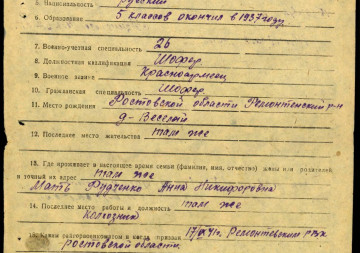 5. Национальность русский
6. Образование 5 классов окончил в 1937 году
7. Военно-учетная специальность 26
8. Должностная квалификация Шофер
9. Военное звание Красноармеец
10. Гражданская специальность Шофер
11. Место рождения Ростовской области Ремонтенский р-н
д- Веселый
12. Последнее место жительства там же
13. Где проживает в настоящее время семья (фамилия, имя, отчество) жены или родителей
и точный их адрес там же
Мать Анна Никифоровна
14. Последнее место работы и должность там же
Колхозник
15. Каким райгорвоенкоматом и когда призван Ремонтенским РВК
Ростовской области.